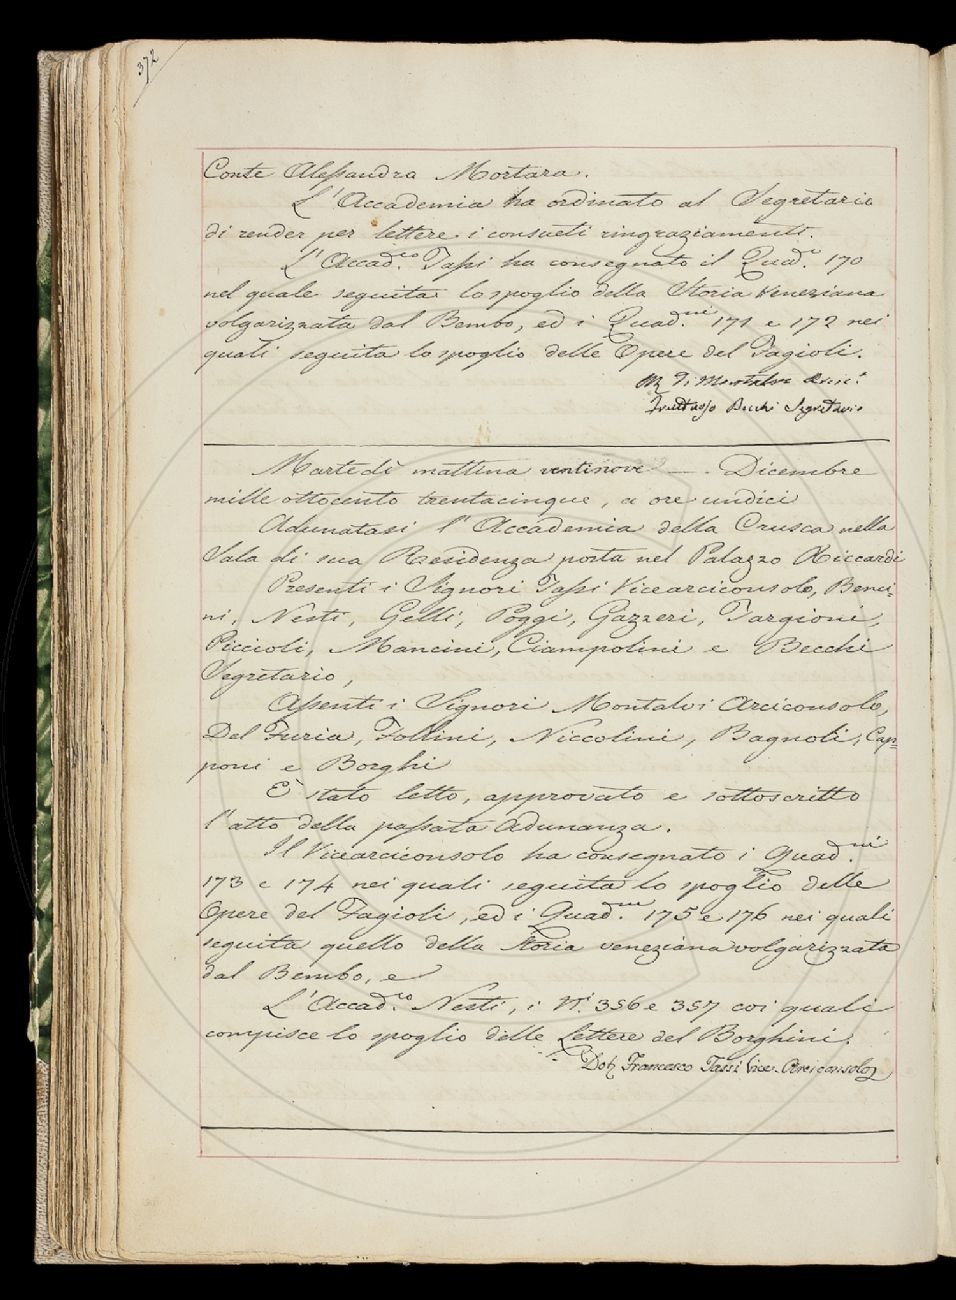 372
Conte Alessandra Mortara.
L'Accademia ha ordinato al Segretario
di render per lettere i consueti ringraziamenti.
L'Accad.co Tassi ha consegnato il Quad.o 170
nel quale seguita lo spoglio della Storia Veneziana
volgarizzata dal Bembo, ed i Quad.ni 171 e 172 nei
quali seguita lo spoglio delle Opere del Fagioli.
Becchi Segretario
Martedì mattina ventinove — . Dicembre
mille ottocento trentacinque, a ore undici
Adunatasi l'Accademia della Crusca nella
Sala di sua Residenza posta nel Palazzo Riccardi
Presenti i Signori Tassi Vicearciconsolo, Benci-
ni, Nesti, Gelli, Poggi, Gazzeri, Targioni,
Piccioli, Mancini, Ciampolini e Becchi
Segretario,
Assenti i Signori Montalvi Arciconsolo,
Del Furia, Follini, Niccolini, Bagnoli, Cap-
poni e Borghi
È stato letto, approvato e sottoscritto
l'atto della passata Adunanza.
Il Vicearciconsolo ha consegnato i Quad.ni
173 e 174 nei quali seguita lo spoglio delle
Opere del Fagioli, ed i Quad.ni 175 e 176 nei quali
seguita quello della Storia veneziana volgarizzata
dal Bembo, e
L'Accad.co Nesti, i N.i 356 e 357 coi quali
compisce lo spoglio delle Lettere del Borghini.
Dott. Francesco Tassi Vice-Arciconsolo